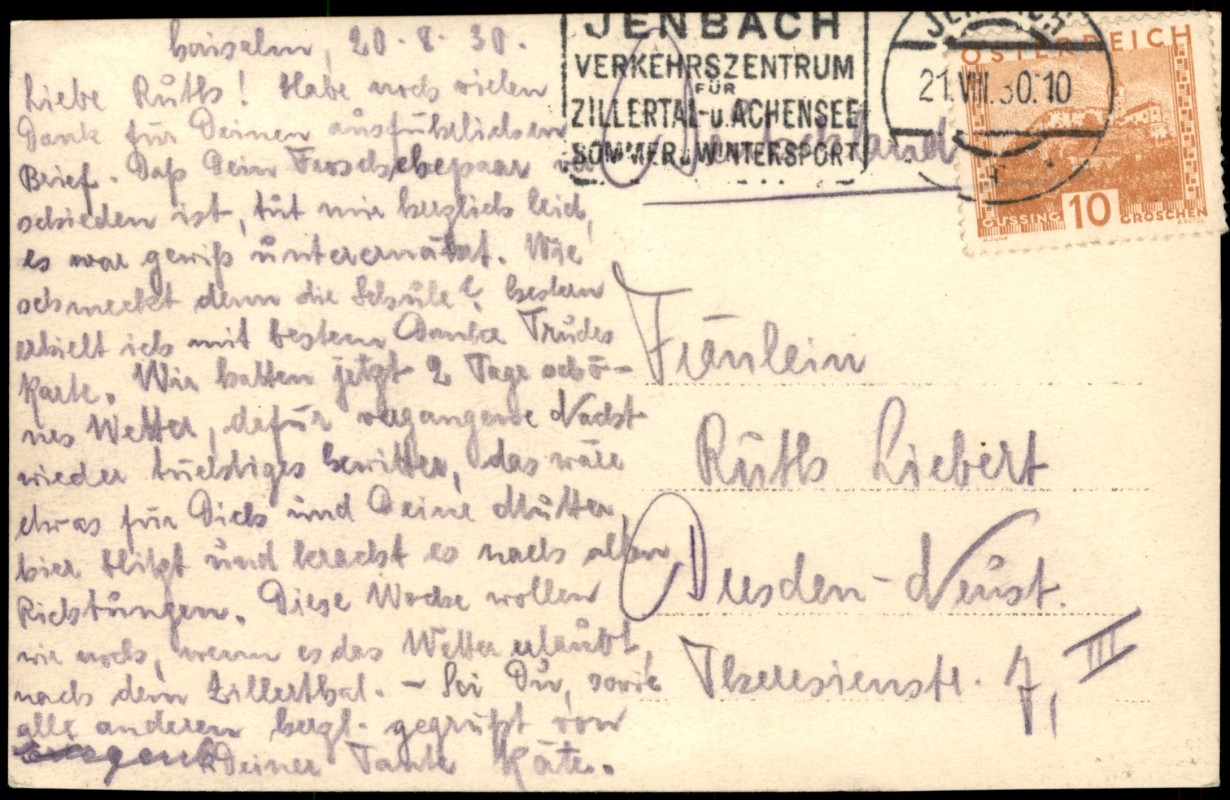 Gaiseln, 20.8.30.
Liebe Ruth! Habe noch vielen
Dank für Deinen ausführlichen
Brief. Daß Dein Froschehepaar
schieden ist, tut mir herzlich leid,
es war gewiß unterernährt. Wie
schmeckt denn die Schule? Gestern
erhielt ich mit bestem Danke Trudes
Karte. Wir hatten jetzt 2 Tage schö-
nes Wetter, dafür vergangene Nacht
wieder tüchtiges Gewitter, das wäre
etwas für Dich und Deine Mutter,
hier blitzt und kracht es nach allen
Richtungen. Diese Woche wollen
wir noch, wenn es das Wetter erlaubt,
nach dem Zillerthal. - Sei Du, sowie
alle anderen herzl. gegrüßt von
Deiner Tante Käte.
JENBACH
VERKEHRSZENTRUM
FÜR
ZILLERTAL-u.ACHENSEE
SOMMER u. WINTERSPORT
JENBACH
21.VIII.30.10
ÖSTERREICH
GÜSSING 10 GROSCHEN
Deutschland
Fräulein
Ruth Liebert
Dresden-Neust.
Theresienstr. 7, III